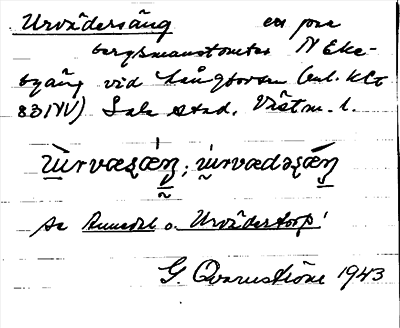 Urvädersäng en pra
bergsmanstomter N Eke-
byäng vid Långforsen (enl. kG
83 NV) Sala stad. Västm. l.
ùrvæʂæ̀ŋ; ùrvædəʂæ̀ŋ
Se o. Urväderstorp!
G. Qvarnström 1943